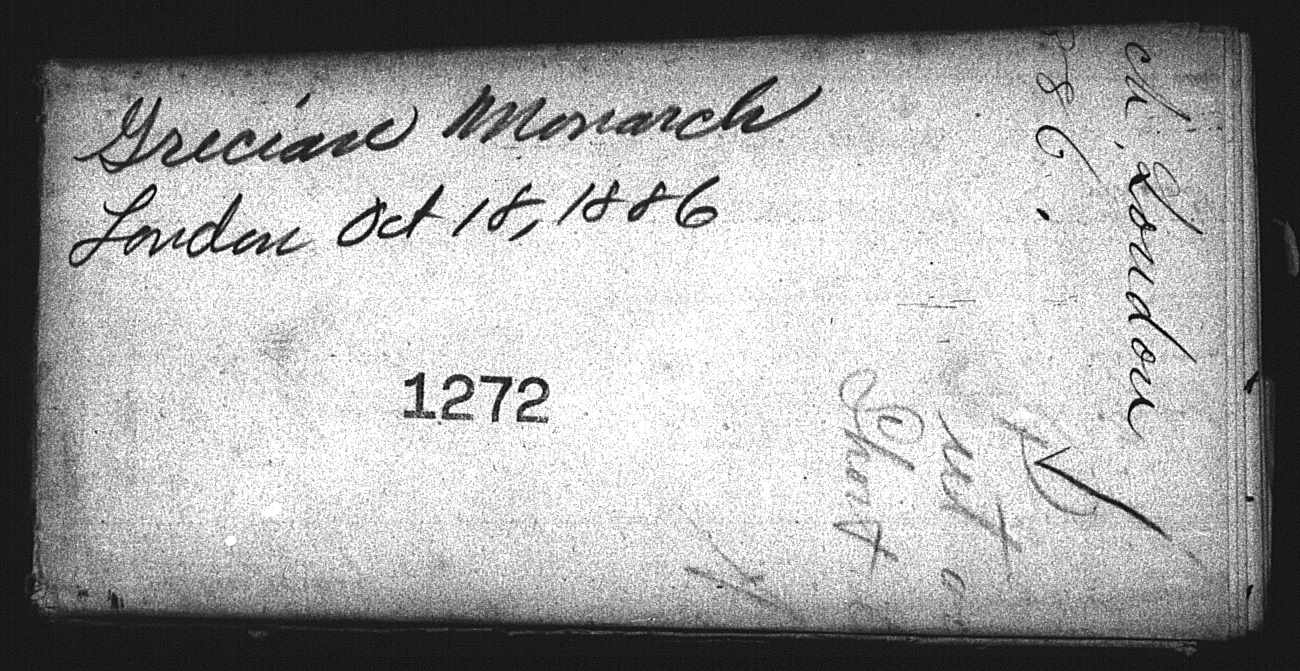 Grecian Monarch
London Oct 18, 1886
1272
ch, London
886.
Short